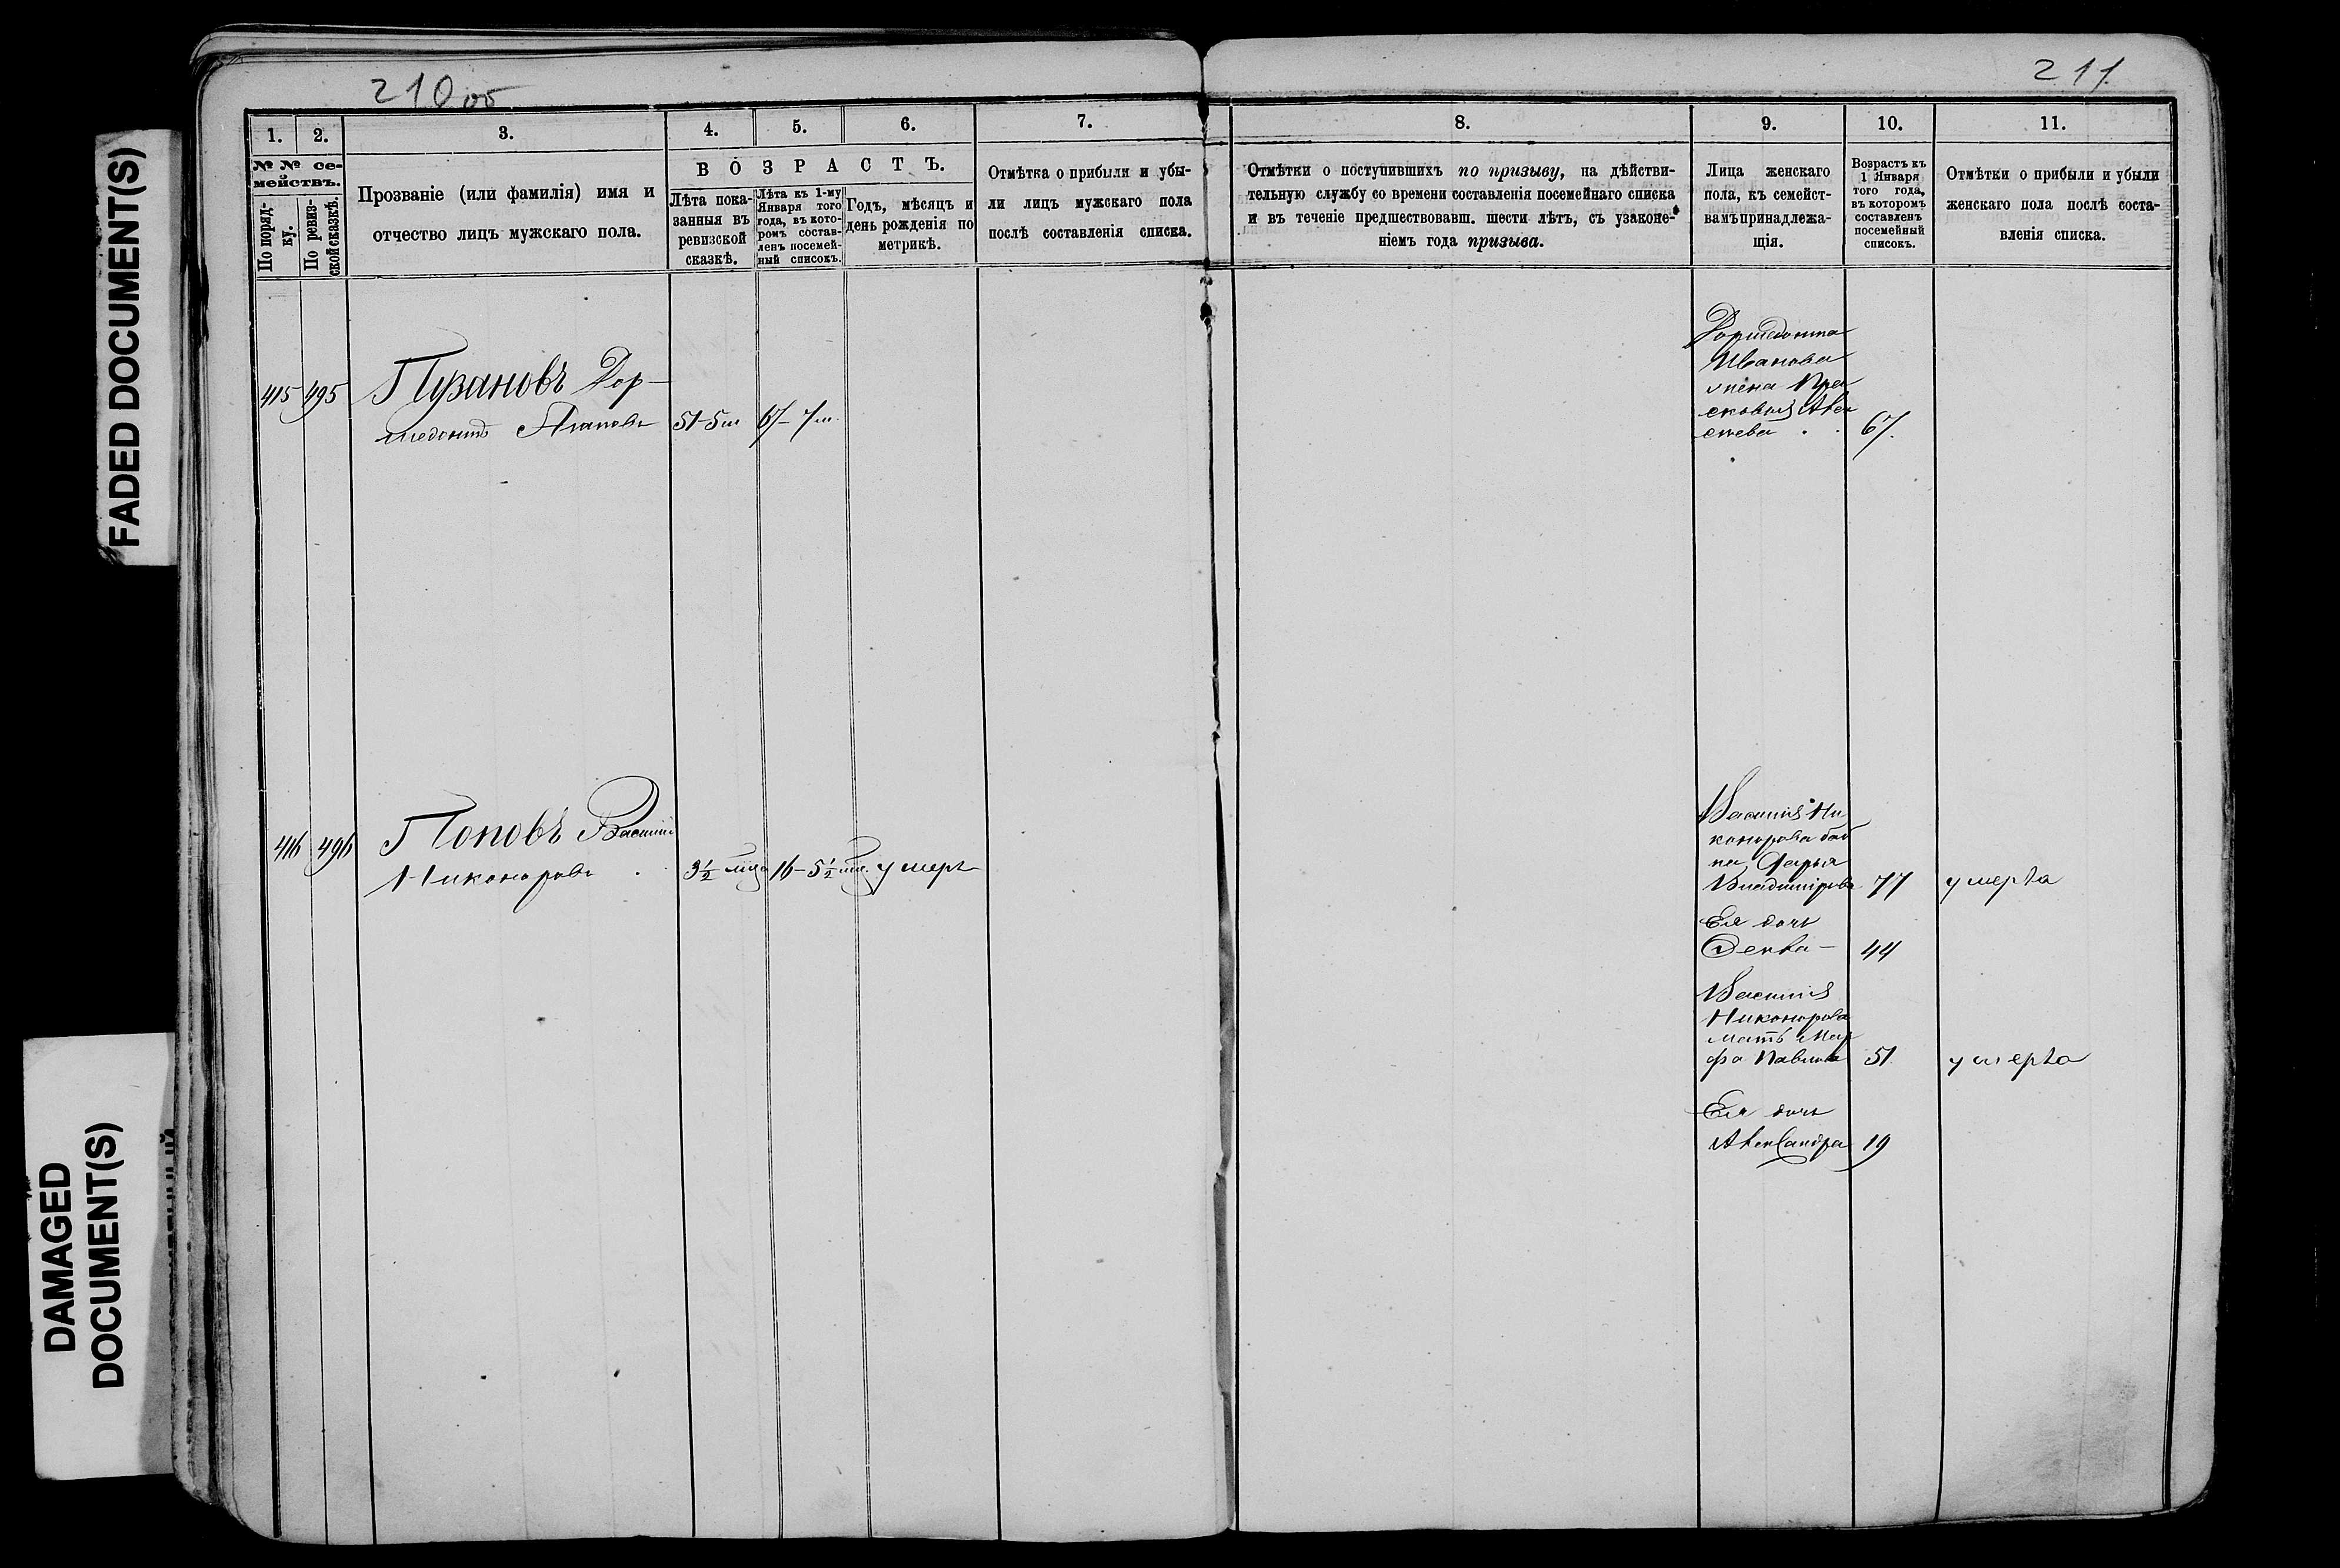 FADED DOCUMENT(S)
DAMAGED
DOCUMENT(S)
210 об
211
1.
2.
3.
4.
5.
6.
7.
8.
9.
10.
11.
№ № се-
мействъ.
По поряд-
ку.
По ревиз-
ской сказкѣ.
Прозваніе (или фамилія) имя и
отчество лицъ мужскаго пола.
ВОЗРАСТЪ.
Лѣта пока-
занныя въ
ревизской
сказкѣ.
Лѣта къ 1-му
Января того
года, въ кото-
ромъ состав-
ленъ посемей-
ный списокъ.
Годъ, мѣсяцъ и
день рожденія по
метрикѣ.
Отмѣтка о прибыли и убы-
ли лицъ мужскаго пола
послѣ составленія списка.
Отмѣтки о поступившихъ по призыву, на дѣйстви-
тельную службу со времени составленія посемейнаго списка
и въ теченіе предшествовавш. шести лѣтъ, съ узаконе-
ніемъ года призыва.
Лица женскаго
пола, къ семейст-
вамъ принадлежа-
щія.
Возрастъ къ
1 Января
того года,
въ которомъ
составленъ
посемейный
списокъ.
Отмѣтки о прибыли и убыли
женскаго пола послѣ соста-
вленія списка.
415 495 Пузановъ Дор-
медонтъ 51-5м 67-7м.
Дормедонта
Иванова
жена Пра
сковья Але
ксѣева 67.
416 496 Поповъ Василій
Никоноровъ 3½ мца 16-5½ м. умеръ
Василія Ни
конорова баб
ка Дарья
Владимірова 77 умерла
Ея дочь
Фекла 44
Василія
Никонорова
мать Мар
фа Павлова 51 умерла
Ея дочь
Александра 19